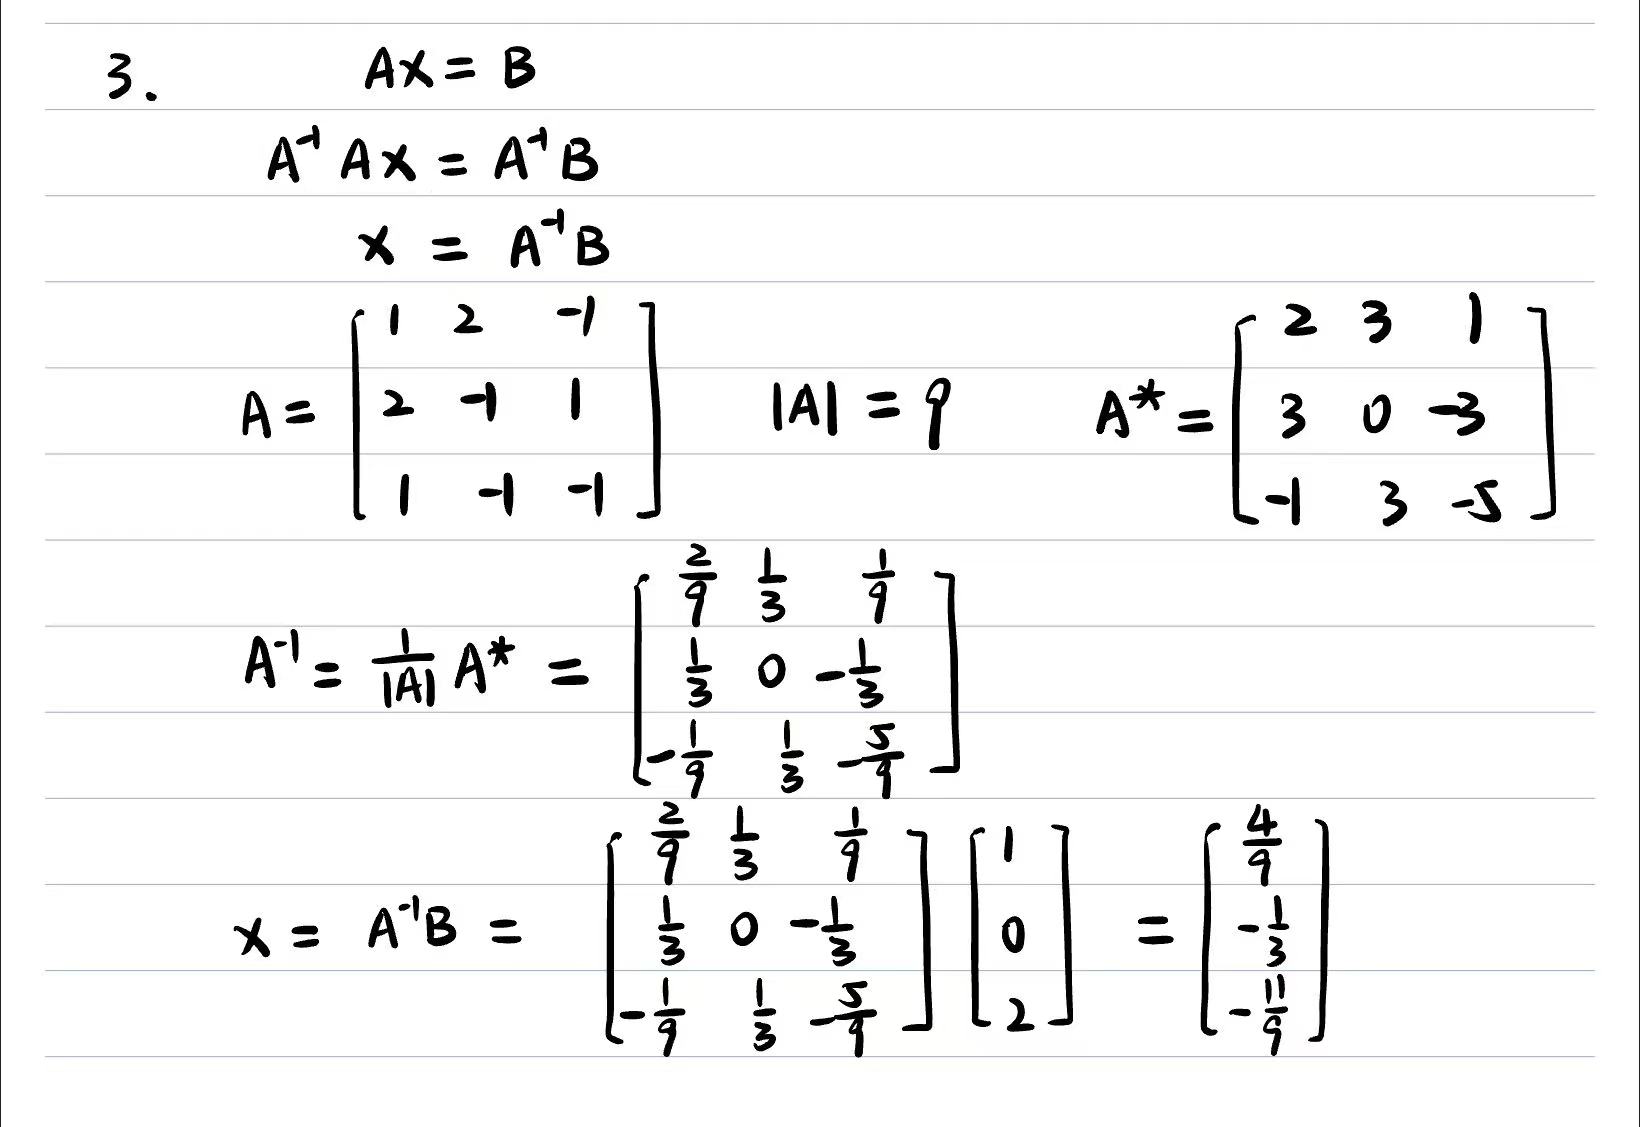 3. AX = B
A⁻¹ A X = A⁻¹ B
X = A⁻¹ B
A = [1 2 -1; 2 -1 1; 1 -1 -1] |A| = 9 A* = [2 3 1; 3 0 -3; -1 3 -5]
A⁻¹ = 1/|A| A* = [2/9 1/3 1/9; 1/3 0 -1/3; -1/9 1/3 -5/9]
X = A⁻¹B = [2/9 1/3 1/9; 1/3 0 -1/3; -1/9 1/3 -5/9] [1; 0; 2] = [4/9; -1/3; -11/9]